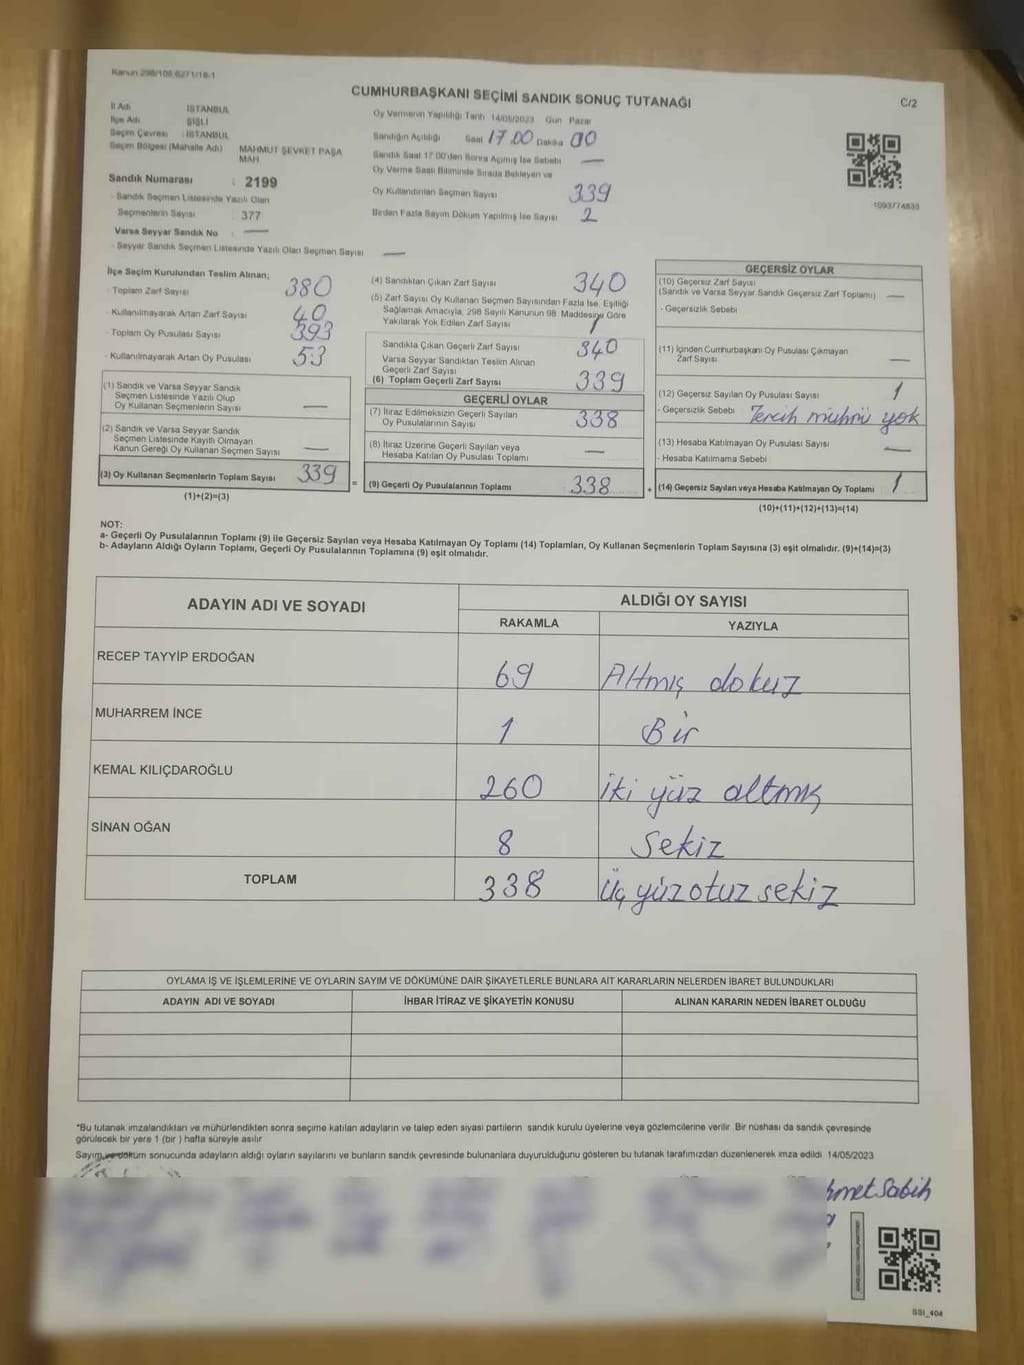 Kanun 298/106 6271/18-1
CUMHURBAŞKANI SEÇİMİ SANDIK SONUÇ TUTANAĞI
C/2
İl Adı İSTANBUL
İlçe Adı ŞİŞLİ
Seçim Çevresi : İSTANBUL
Seçim Bölgesi (Mahalle Adı) MAHMUT ŞEVKET PAŞA
MAH
Sandık Numarası : 2199
- Sandık Seçmen Listesinde Yazılı Olan
Seçmenlerin Sayısı 377
Varsa Seyyar Sandık No : —
- Seyyar Sandık Seçmen Listesinde Yazılı Olan Seçmen Sayısı —
Oy Vermenin Yapıldığı Tarih 14/05/2023 Gün Pazar
Sandığın Açıldığı Saat 17.00 Dakika 00
Sandık Saat 17:00'den Sonra Açılmış İse Sebebi —
Oy Verme Saati Bitiminde Sırada Bekleyen ve
Oy Kullandırılan Seçmen Sayısı 339
Birden Fazla Sayım Döküm Yapılmış İse Sayısı 2
1093774835
İlçe Seçim Kurulundan Teslim Alınan;
- Toplam Zarf Sayısı 380
- Kullanılmayarak Artan Zarf Sayısı 40
- Toplam Oy Pusulası Sayısı 393
- Kullanılmayarak Artan Oy Pusulası 53
(1) Sandık ve Varsa Seyyar Sandık
Seçmen Listesinde Yazılı Olup
Oy Kullanan Seçmenlerin Sayısı —
(2) Sandık ve Varsa Seyyar Sandık
Seçmen Listesinde Kayıtlı Olmayan
Kanun Gereği Oy Kullanan Seçmen Sayısı —
(3) Oy Kullanan Seçmenlerin Toplam Sayısı 339
(1)+(2)=(3)
=
(4) Sandıktan Çıkan Zarf Sayısı 340
(5) Zarf Sayısı Oy Kullanan Seçmen Sayısından Fazla İse, Eşitliği
Sağlamak Amacıyla, 298 Sayılı Kanunun 98. Maddesine Göre
Yakılarak Yok Edilen Zarf Sayısı 1
Sandıkta Çıkan Geçerli Zarf Sayısı 340
Varsa Seyyar Sandıktan Teslim Alınan
Geçerli Zarf Sayısı
(6) Toplam Geçerli Zarf Sayısı 339
GEÇERLİ OYLAR
(7) İtiraz Edilmeksizin Geçerli Sayılan
Oy Pusulalarının Sayısı 338
(8) İtiraz Üzerine Geçerli Sayılan veya
Hesaba Katılan Oy Pusulası Toplamı —
(9) Geçerli Oy Pusulalarının Toplamı 338
+
GEÇERSİZ OYLAR
(10) Geçersiz Zarf Sayısı
(Sandık ve Varsa Seyyar Sandık Geçersiz Zarf Toplamı) —
- Geçersizlik Sebebi
(11) İçinden Cumhurbaşkanı Oy Pusulası Çıkmayan
Zarf Sayısı —
(12) Geçersiz Sayılan Oy Pusulası Sayısı 1
- Geçersizlik Sebebi Tercih mührü yok
(13) Hesaba Katılmayan Oy Pusulası Sayısı —
- Hesaba Katılmama Sebebi
(14) Geçersiz Sayılan veya Hesaba Katılmayan Oy Toplamı 1
(10)+(11)+(12)+(13)=(14)
NOT:
a- Geçerli Oy Pusulalarının Toplamı (9) ile Geçersiz Sayılan veya Hesaba Katılmayan Oy Toplamı (14) Toplamları, Oy Kullanan Seçmenlerin Toplam Sayısına (3) eşit olmalıdır. (9)+(14)=(3)
b- Adayların Aldığı Oyların Toplamı, Geçerli Oy Pusulalarının Toplamına (9) eşit olmalıdır.
ADAYIN ADI VE SOYADI
ALDIĞI OY SAYISI
RAKAMLA YAZIYLA
RECEP TAYYİP ERDOĞAN 69 Altmış dokuz
MUHARREM İNCE 1 Bir
KEMAL KILIÇDAROĞLU 260 iki yüz altmış
SİNAN OĞAN 8 Sekiz
TOPLAM 338 üç yüz otuz sekiz
OYLAMA İŞ VE İŞLEMLERİNE VE OYLARIN SAYIM VE DÖKÜMÜNE DAİR ŞİKAYETLERLE BUNLARA AİT KARARLARIN NELERDEN İBARET BULUNDUKLARI
ADAYIN ADI VE SOYADI İHBAR İTİRAZ VE ŞİKAYETİN KONUSU ALINAN KARARIN NEDEN İBARET OLDUĞU
*Bu tutanak imzalandıktan ve mühürlendikten sonra seçime katılan adayların ve talep eden siyasi partilerin sandık kurulu üyelerine veya gözlemcilerine verilir. Bir nüshası da sandık çevresinde
görülecek bir yere 1 (bir ) hafta süreyle asılır
Sayım ve döküm sonucunda adayların aldığı oyların sayılarını ve bunların sandık çevresinde bulunanlara duyurulduğunu gösteren bu tutanak tarafımızdan düzenlenerek imza edildi. 14/05/2023
hmet Sabih
SSI_404